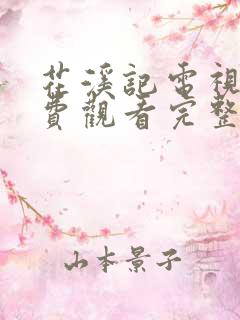 茳溪記電視
費觀看完整
山本景子